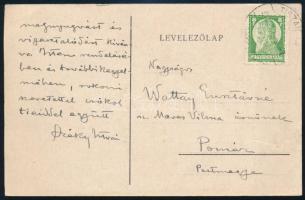 megnyugvást és
vigasztalódást kíván
va Isten rendelésé-
ben és további kegyel-
mében, rokoni
szeretettel csókol
tieiddel együtt
István
LEVELEZŐLAP
Nagyságos
Wattay
u. Maros Vilma úrnőnek
Pomáz
Pestmegye